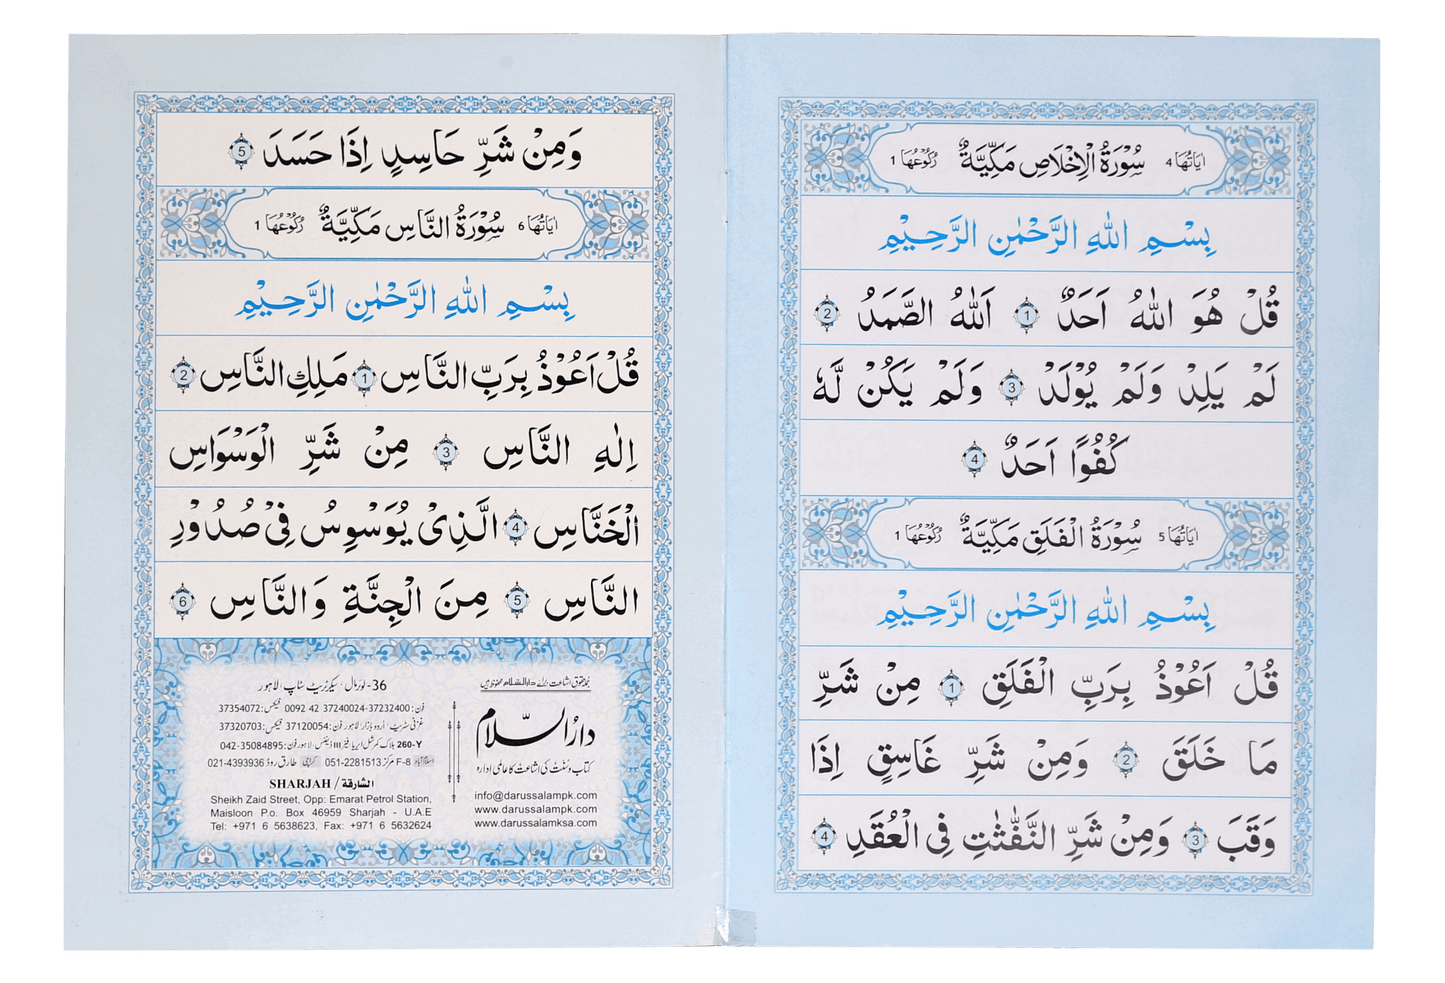 اٰيَاتُهَا 4 سُوْرَةُ الْاِخْلَاصِ مَكِّيَّةٌ رُكُوْعُهَا 1
بِسْمِ اللّٰهِ الرَّحْمٰنِ الرَّحِيْمِ
قُلْ هُوَ اللّٰهُ اَحَدٌ 1 اَللّٰهُ الصَّمَدُ 2
لَمْ يَلِدْ وَلَمْ يُوْلَدْ 3 وَلَمْ يَكُنْ لَّهٗ
كُفُوًا اَحَدٌ 4
اٰيَاتُهَا 5 سُوْرَةُ الْفَلَقِ مَكِّيَّةٌ رُكُوْعُهَا 1
بِسْمِ اللّٰهِ الرَّحْمٰنِ الرَّحِيْمِ
قُلْ اَعُوْذُ بِرَبِّ الْفَلَقِ 1 مِنْ شَرِّ
مَا خَلَقَ 2 وَمِنْ شَرِّ غَاسِقٍ اِذَا
وَقَبَ 3 وَمِنْ شَرِّ النَّفّٰثٰتِ فِى الْعُقَدِ 4
وَمِنْ شَرِّ حَاسِدٍ اِذَا حَسَدَ 5
اٰيَاتُهَا 6 سُوْرَةُ النَّاسِ مَكِّيَّةٌ رُكُوْعُهَا 1
بِسْمِ اللّٰهِ الرَّحْمٰنِ الرَّحِيْمِ
قُلْ اَعُوْذُ بِرَبِّ النَّاسِ 1 مَلِكِ النَّاسِ 2
اِلٰهِ النَّاسِ 3 مِنْ شَرِّ الْوَسْوَاسِ
الْخَنَّاسِ 4 الَّذِىْ يُوَسْوِسُ فِىْ صُدُوْرِ
النَّاسِ 5 مِنَ الْجِنَّةِ وَالنَّاسِ 6
جملہ حقوق اشاعت برائے دارالسلام محفوظ ہیں
دارُالسّلام
کتاب و سنت کی اشاعت کا عالمی ادارہ
info@darussalampk.com
www.darussalampk.com
www.darussalamksa.com
36- لوئرمال، سیکرٹریٹ سٹاپ لاہور
فون: 0092 42 37240024-37232400 فیکس: 37354072
غزنی سٹریٹ، اُردو بازار لاہور فون: 37120054 فیکس: 37320703
260-Y بلاک کمرشل ایریا فیز III ڈیفنس، لاہور فون: 042-35084895
اسلام آباد F-8 مرکز 051-2281513 کراچی طارق روڈ 021-4393936
SHARJAH / الشارقة
Sheikh Zaid Street, Opp: Emarat Petrol Station,
Maisloon P.o. Box 46959 Sharjah - U.A.E
Tel: +971 6 5638623, Fax: +971 6 5632624